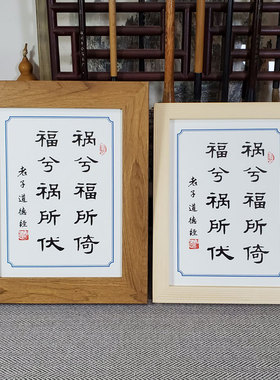 祸兮福所倚
福兮祸所伏
老子道德经
祸兮福所倚
福兮祸所伏
老子道德经